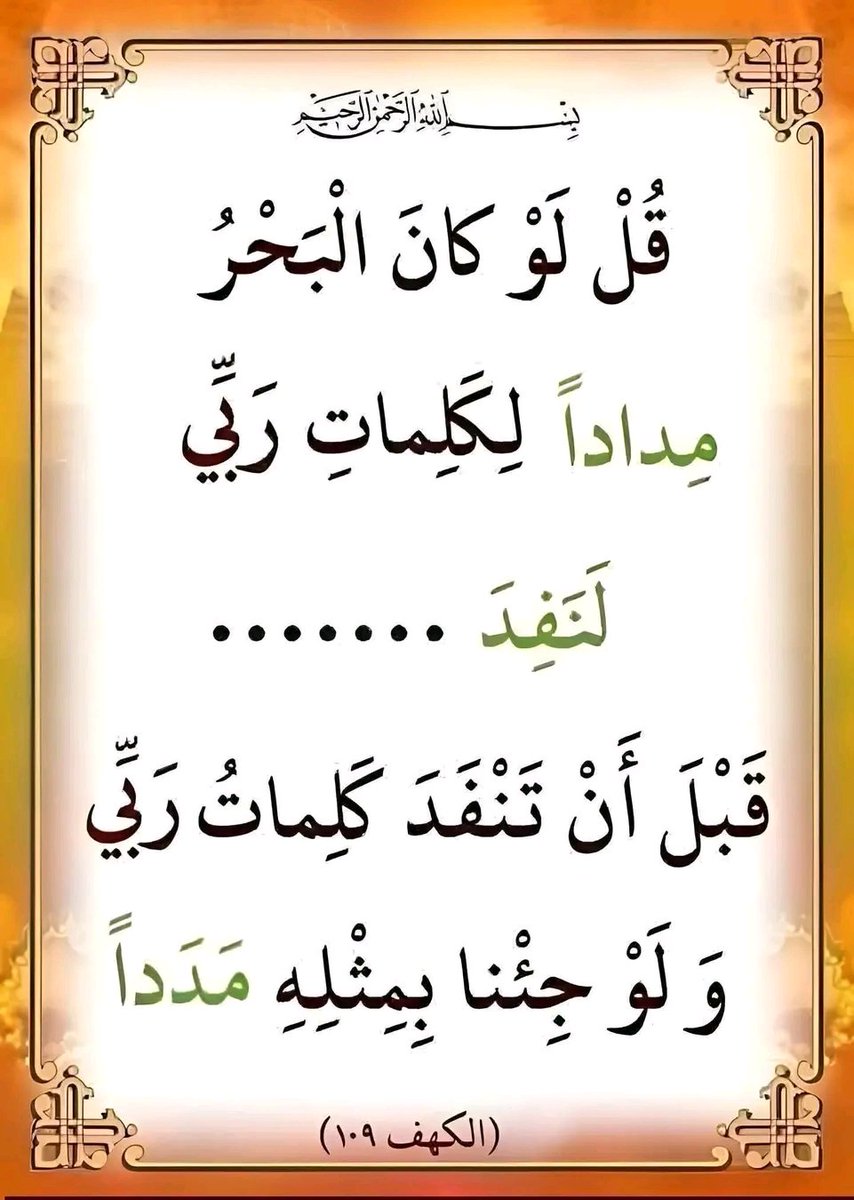 بِسْمِ اللهِ الرَّحْمٰنِ الرَّحِيْمِ
قُلْ لَوْ كانَ الْبَحْرُ
مِداداً لِكَلِماتِ رَبِّي
لَنَفِدَ .......
قَبْلَ أَنْ تَنْفَدَ كَلِماتُ رَبِّي
وَ لَوْ جِئْنا بِمِثْلِهِ مَدَداً
(الكهف ١٠٩)